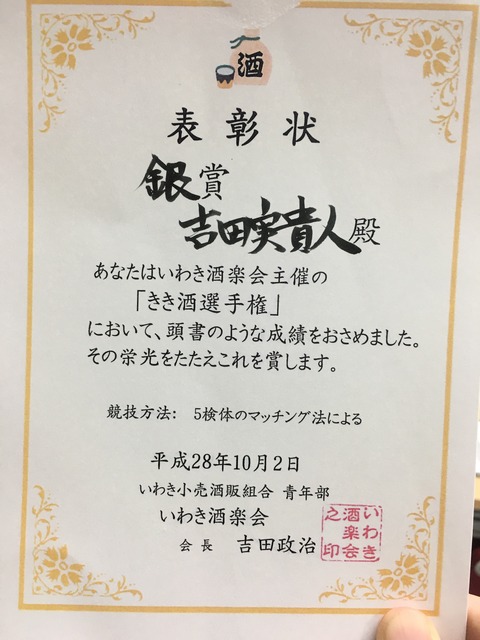 酒
表彰状
銀賞
吉田実貴人殿
あなたはいわき酒楽会主催の
「きき酒選手権」
において、頭書のような成績をおさめました。
その栄光をたたえこれを賞します。
競技方法: 5検体のマッチング法による
平成28年10月2日
いわき小売酒販組合 青年部
いわき酒楽会
会長 吉田政治
いわき
酒楽会
之印